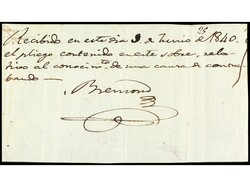 Recibido en este dia 3 de Junio de 1840.
el pliego contenido en este sobre, rela-
tivo al conocim.to de una causa de contra-
bando —
Bremond